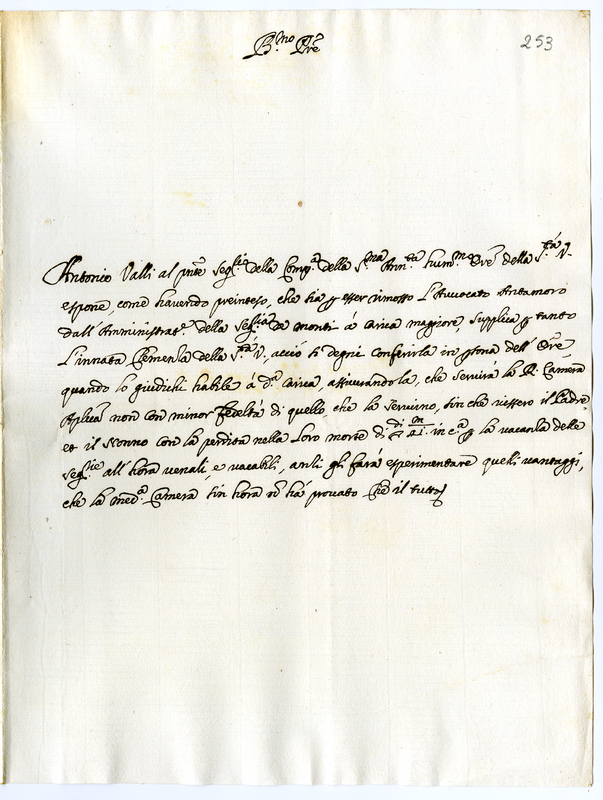 B.mo Pre
253
Antonio Valli al pnte Seg.rio della Comp.a della S.ma Ann.ta hum.mo Ore della S.tà V.
espone, come havendo preinteso, che sia p esser rimosso L'Avvocato Antamoro
dall'Amministrat.e della Seg.ria de monti à carica maggiore, supplica p tanto
L'innata Clemenza della S.tà V. acciò si degni conferirla in psona dell'Ore
quando lo giudichi habile à d.a carica, assicurandola, che servirà la R. Camera
Aplica non con minor fedeltà di quello che la servirno, sin che vissero il Padre,
et il Nonno con la perdita nella Loro morte di 21 m in c.a p la vacanza delle
Seg.rie all'hora venali, e vacabili, anzi gli farà esperimentare quelli vantaggi,
che la med.a Camera sin hora nò hà provato Che il tutto